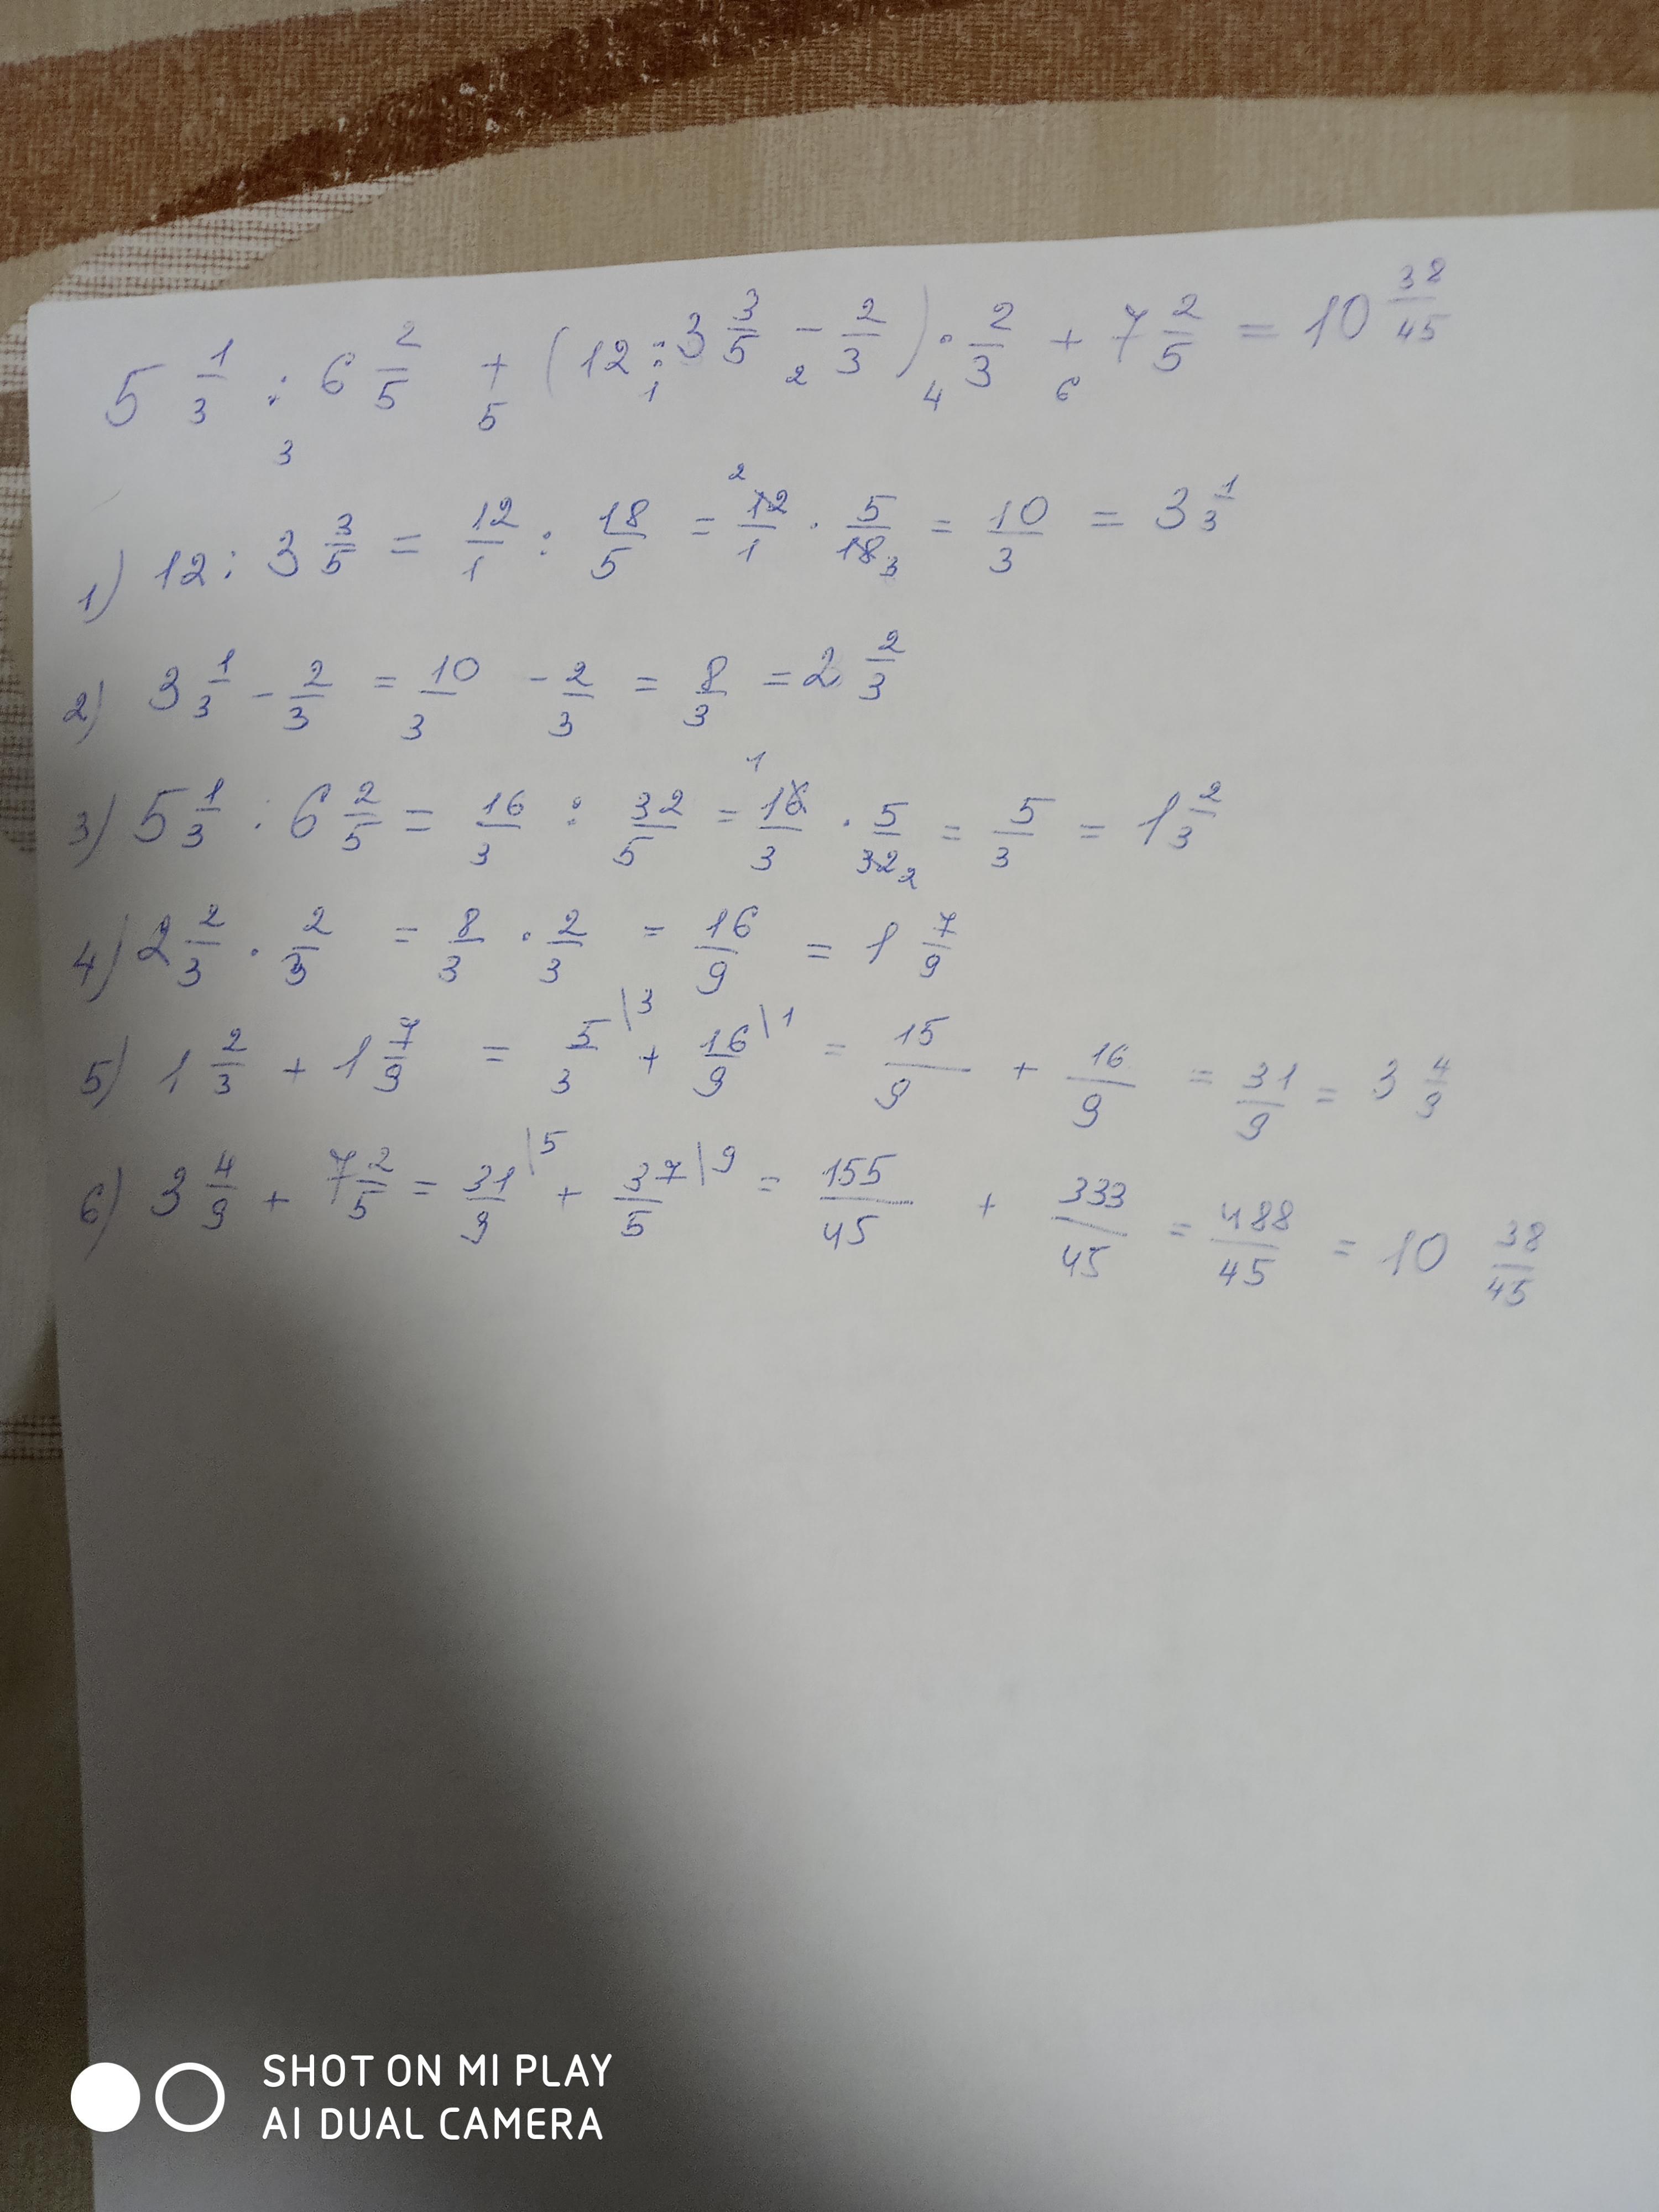 5 1/3 : 6 2/5 + (12 : 3 3/5 - 2/3) · 2/3 + 7 2/5 = 10 38/45
3 5 1 2 4 6
1) 12 : 3 3/5 = 12/1 : 18/5 = 12/1 2 · 5/18 3 = 10/3 = 3 1/3
2) 3 1/3 - 2/3 = 10/3 - 2/3 = 8/3 = 2 2/3
3) 5 1/3 : 6 2/5 = 16/3 : 32/5 = 16/3 1 · 5/32 2 = 5/3 = 1 2/3
4) 2 2/3 · 2/3 = 8/3 · 2/3 = 16/9 = 1 7/9
5) 1 2/3 + 1 7/9 = 5/3 \3 + 16/9 \1 = 15/9 + 16/9 = 31/9 = 3 4/9
6) 3 4/9 + 7 2/5 = 31/9 \5 + 37/5 \9 = 155/45 + 333/45 = 488/45 = 10 38/45
SHOT ON MI PLAY
AI DUAL CAMERA